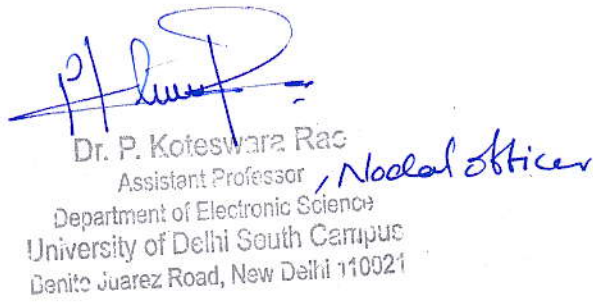 Dr. P. Koteswara Rao
Assistant Professor , Nodal Officer
Department of Electronic Science
University of Delhi South Campus
Benito Juarez Road, New Delhi 110021